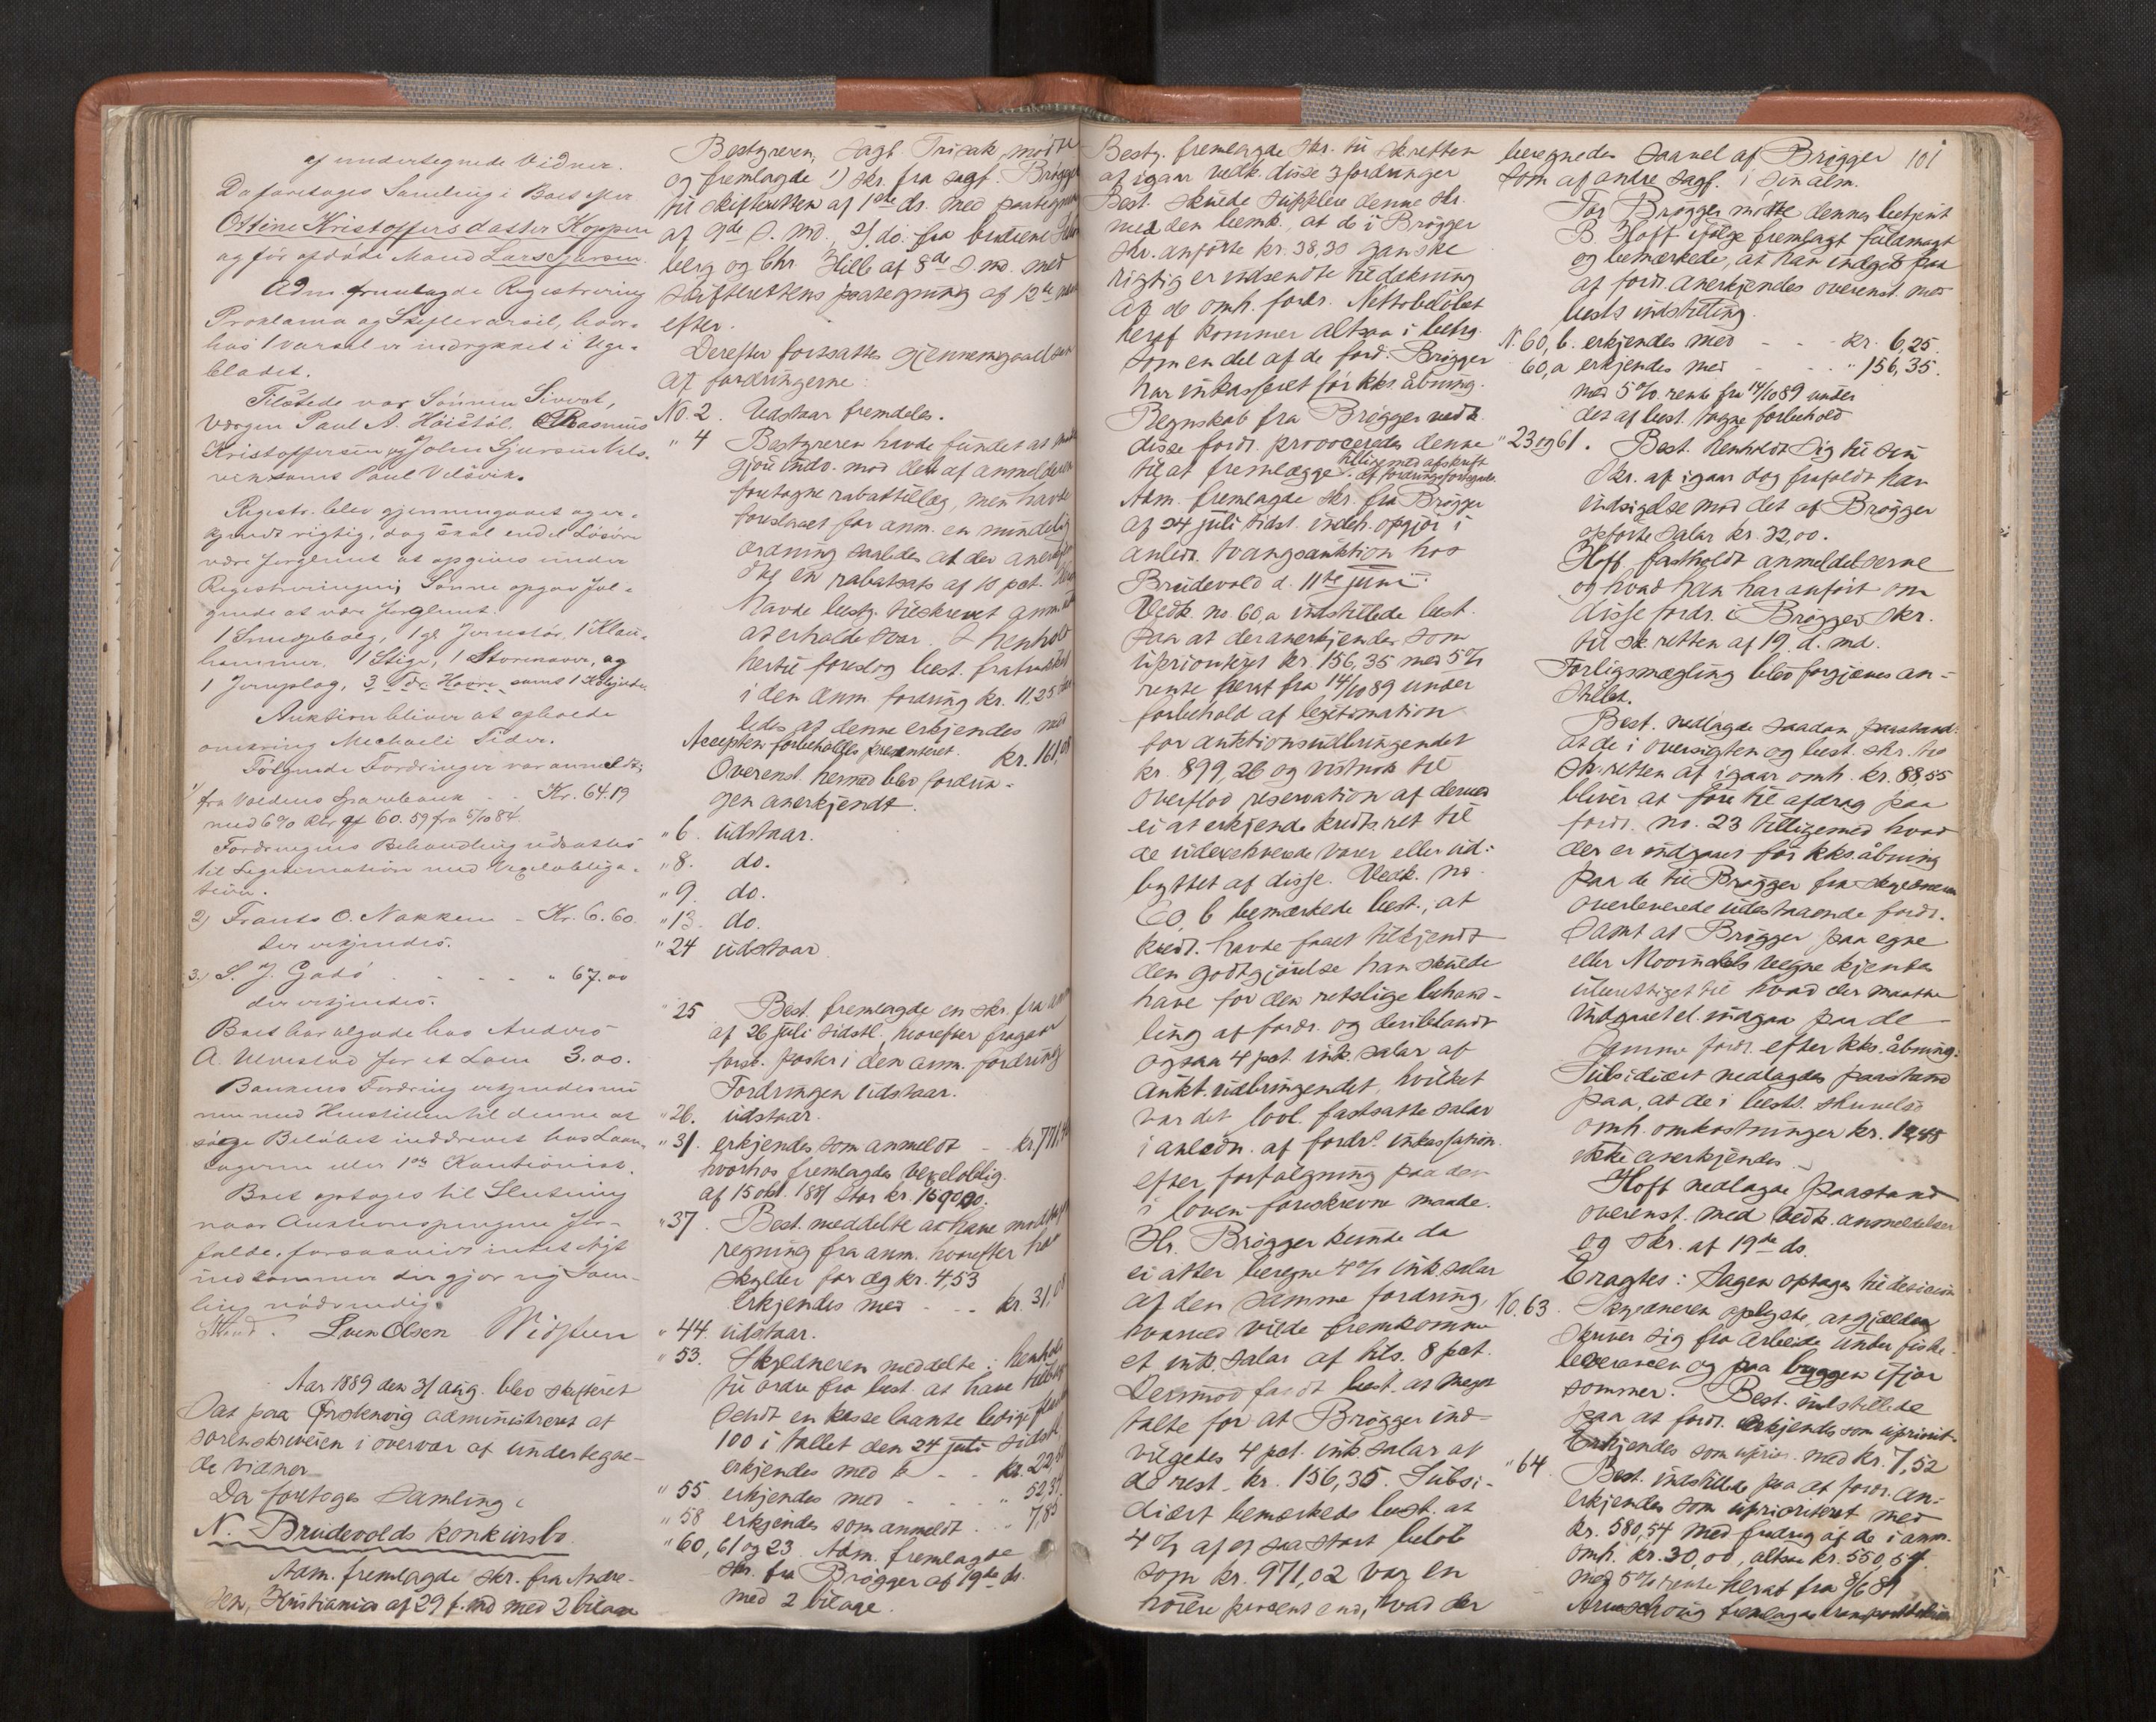 af undertegnede Vidner.
Da foretoges Samling i Boet efter
Ostine Kristoffersdatter Koppen
og før afdøde Mand Lars Sjursen.
Adm. fremlagde Registrering
Proklama og Skiftevarsel, hvor-
hos 1 Varsel er indrykket i Uge-
bladet.
Tilstede var Sønnen Sivert,
Værgen Paul A. Høistøl, Rasmus
Kristoffersen og John Sjursen Vels-
vik samt Paul Velsvik.
Registr. blev gjennemgaaet og er-
kjendt rigtig, dog skal endel Løsøre
være forglemt at opgives under
Registreringen; Sønnen opgav føl-
gende at være forglemt:
1 Smedjebælg, 1 gl. Jernstør, 1 Klein-
hammer, 1 Stige, 1 og
1 Jernslag, 3 Tdr. Havre samt 1
Auktion bliver at afholde
omkring Michaeli Tider.
Følgende Fordringer var anmeldt:
1) fra Voldens Sparebank - - Kr. 64.19
med 6% Rte af 60.59 fra 5/10 84.
Fordringens Behandling udsattes
til Legitimation med Vexelobliga-
tion.
2) Frants O. Nakken - Kr. 6.60
der erkjendes.
3.) S. J. Gadø - - - - " 67.00
der erkjendes.
Boet har tilgode hos Anders
A. Ulvestad for et Lam 3.00.
Bankens Fordring erkjendes nu
med Henstillen til denne at
søge Beløbet inddrevet hos Laan-
tageren eller 1ste Kautionist.
Boet optages til Slutning
naar Auktionspengene for-
falde, forsaavidt intet Nyt
indkommer der gjør ny Sam-
ling nødvendig.
Sven Olsen
Aar 1889 den 31 aug. blev skifteret
sat paa Ørstenvig administreret af
sorenskriveren i overvær af undertegne-
de vidner
Da foretoges samling i
N. Brudevolds konkursbo.
Adm. fremlagde skr. fra Andre-
sen, Kristiania af 29 f. md med 2 bilage
Bestyreren, sagf. Trisak, mødte
og fremlagde 1) skr. fra sagf. Brøgger
til skifteretten af 1ste ds. med paategning
af 9de s. md., 2) do. fra brødrene
berg og Chr. Hille af 8de s. md. med
skifterettens paategning af 12te
efter.
Derefter fortsattes gjennemgaaelsen
af fordringerne:
No. 2. Udstaar fremdeles.
" 4 Bestyreren havde fundet at
gjøre inds. mod den af anmelderen
foretagne rabattillæg, men havde
foreslaaet for anm. en mindelig
ordning saaledes at der anerkjen-
des en rabatsats af 10 pct.
havde besty. tilskrevet anm.
at erholde svar. I henhold
hertil foreslog best. fratrukket
i den anm. fordring kr. 11,25
ledes at denne erkjendes med
Accepten forbeholdes præsenteret. kr. 161,08
Overenst. hermed blev fordrin-
gen anerkjendt.
" 6. udstaar.
" 8. do.
" 9. do.
" 13. do.
" 24 udstaar
" 25 Best. fremlagde en skr. fra anm
af 26 juli sidstl., hvorefter fragaar
forsk. poster i den anm. fordring
Fordringen udstaar.
" 26. udstaar.
" 31. erkjendes som anmeldt - kr.
hvorhos fremlagdes vexeloblig.
af 15 okt. 1887 stor kr.
" 37. Best. meddelte at have
regning fra anm. hvorefter han
skylder for æg kr. 4,53
erkjendes med - - kr. 31,08
" 44. udstaar.
" 53. Skyldneren meddelte i henhold
til ordre fra best. at have tilbage-
sendt en kasse laante ledige
100 i tallet den 24 juli sidstl.
erkjendes med - - kr.
" 55 erkjendes med - - - " 52,37.
" 58 erkjendes som anmeldt - - " 7,85
" 60, 61 og 23. Adm. fremlagde
skr. fra Brøgger af 19de ds.
med 2 bilage.
Besty. fremlagde skr. til skretten
af igaar vedk. disse 3 fordringer
Best. skulde supplere denne skr.
med den bemk. at de i Brøgger
skr. anførte kr. 38,30 ganske
rigtig er indsendte til dækning
af de omh. fordr. Nettobeløbet
heraf kommer altsaa i betrg.
som en del af de ford. Brøgger
har inkasseret før kks. åbning.
Regnskab fra Brøgger vedk.
disse fordr. provoceredes denne
til at fremlægge tilligemed afskrift af fordringsfortegnelsen.
Adm. fremlagde skr. fra Brøgger
af 24 juli sidstl. indeh. opgjør i
anledn. tvangsauktion hos
Brudevold d. 11te juni.
Vedk. no 60,a indstillede best.
paa at der anerkjendes som
uprioriteret kr. 156,35 med 5%
rente heraf fra 14/10 89 under
forbehold af legitimation
for auktionsudbringendet
kr. 899,26 og vistnok til
overflod reservation af derved
ei at erkjende kredts. ret til
de udexekverede varer eller ud-
byttet af disse. Vedk. no.
60,b bemærkede best., at
kredt. havde faaet tilkjendt
den godtgjørelse han skulde
have for den retslige behand-
ling af fordr. og deriblandt
ogsaa 4 pct. ink. salar af
aukt. udbringendet, hvilket
var det lovl. fastsatte salar
i anledn. af fordr.s inkassation
efter forfølgning paa den
i loven foreskrevne maade.
Hr. Brøgger kunde da
ei atter beregne 4% ink. salar
af den samme fordring,
hvorved vilde fremkomme
et ink. salar af tils. 8 pct.
Derimod fandt best. at meget
talte for at Brøgger ind-
vilgedes 4 pct. ink salar af
de rest. kr. 156,35. Subsi-
diært bemærkede best. at
4% af et saa stort beløb
som kr. 971,02 var en
høiere procent end, hvad der
beregnedes saavel af Brøgger 101
som af andre sagf. i sin alm.
For Brøgger mødte dennes betjent
B. Hoff ifølge fremlagt fuldmagt
og bemærkede, at han indgik paa
at fordr. anerkjendes overenst. med
bests indstilling.
N. 60,b. erkjendes med - - - kr. 6,25.
60,a erkjendes med - - - " 156,35.
med 5% rente fra 14/10 89 under
det af best. tagne forbehold
" 23 og 61. Best. henholdt sig til sin
skr. af igaar dog frafaldt han
indsigelse mod det af Brøgger
opførte salar kr. 32,00.
Hoff fastholdt anmeldelserne
og hvad han har anført om
disse fordr. i Brøggers skr.
til sk.retten af 19. d. md.
Forligsmægling blev forgjæves an-
stillet.
Best. nedlagde saadan paastand:
at de i oversigten og best. skr. til
sk.retten af igaar omh. kr. 88,55
bliver at føre til afdrag paa
fordr. no. 23 tilligemed hvad
der er indgaaet før kks. åbning
paa de til Brøgger fra skyldneren
overleverede udestaaende fordr.
samt at Brøgger paa egne
eller vegne kjendes
uberettiget til hvad der maatte
indgaaet el. indgaa paa de-
samme fordr. efter kks. åbning.
Subsidiært nedlagdes paastand
paa, at de i bests. skrivelse
omh. omkostninger kr.
ikke anerkjendes.
Hoff nedlagde paastand
overenst. med vedk. anmeldelser
og skr. af 19de ds.
Eragtes: Sagen optages til decision
No. 63. Skyldneren oplyste, at gjælden
skriver sig fra arbeide under fiske-
leverancen og paa bryggen ifjor
sommer. Best. indstillede
paa at fordr. erkjendes som upriorit.
Erkjendes som uprior. med kr. 7,52
" 64. Best. indstillede paa at fordr. an-
erkjendes som uprioriteret med
kr. 580,54 med fradrag af de i anm.
omh. kr. 30,00, altsaa kr. 550,54
med 5% rente heraf fra 8/6 89
fremlagde